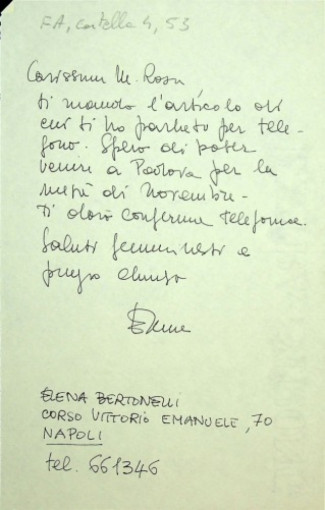 FA, cartella 4, 53
Carissima M. Rosa
ti mando l'articolo di
cui ti ho parlato per tele-
fono. Spero di poter
venire a Padova per la
metà di Novembre -
ti darò conferma telefonica.
Saluti femministi e
pugno chiuso
Elena
ELENA BERTONELLI
CORSO VITTORIO EMANUELE, 70
NAPOLI
tel. 661346